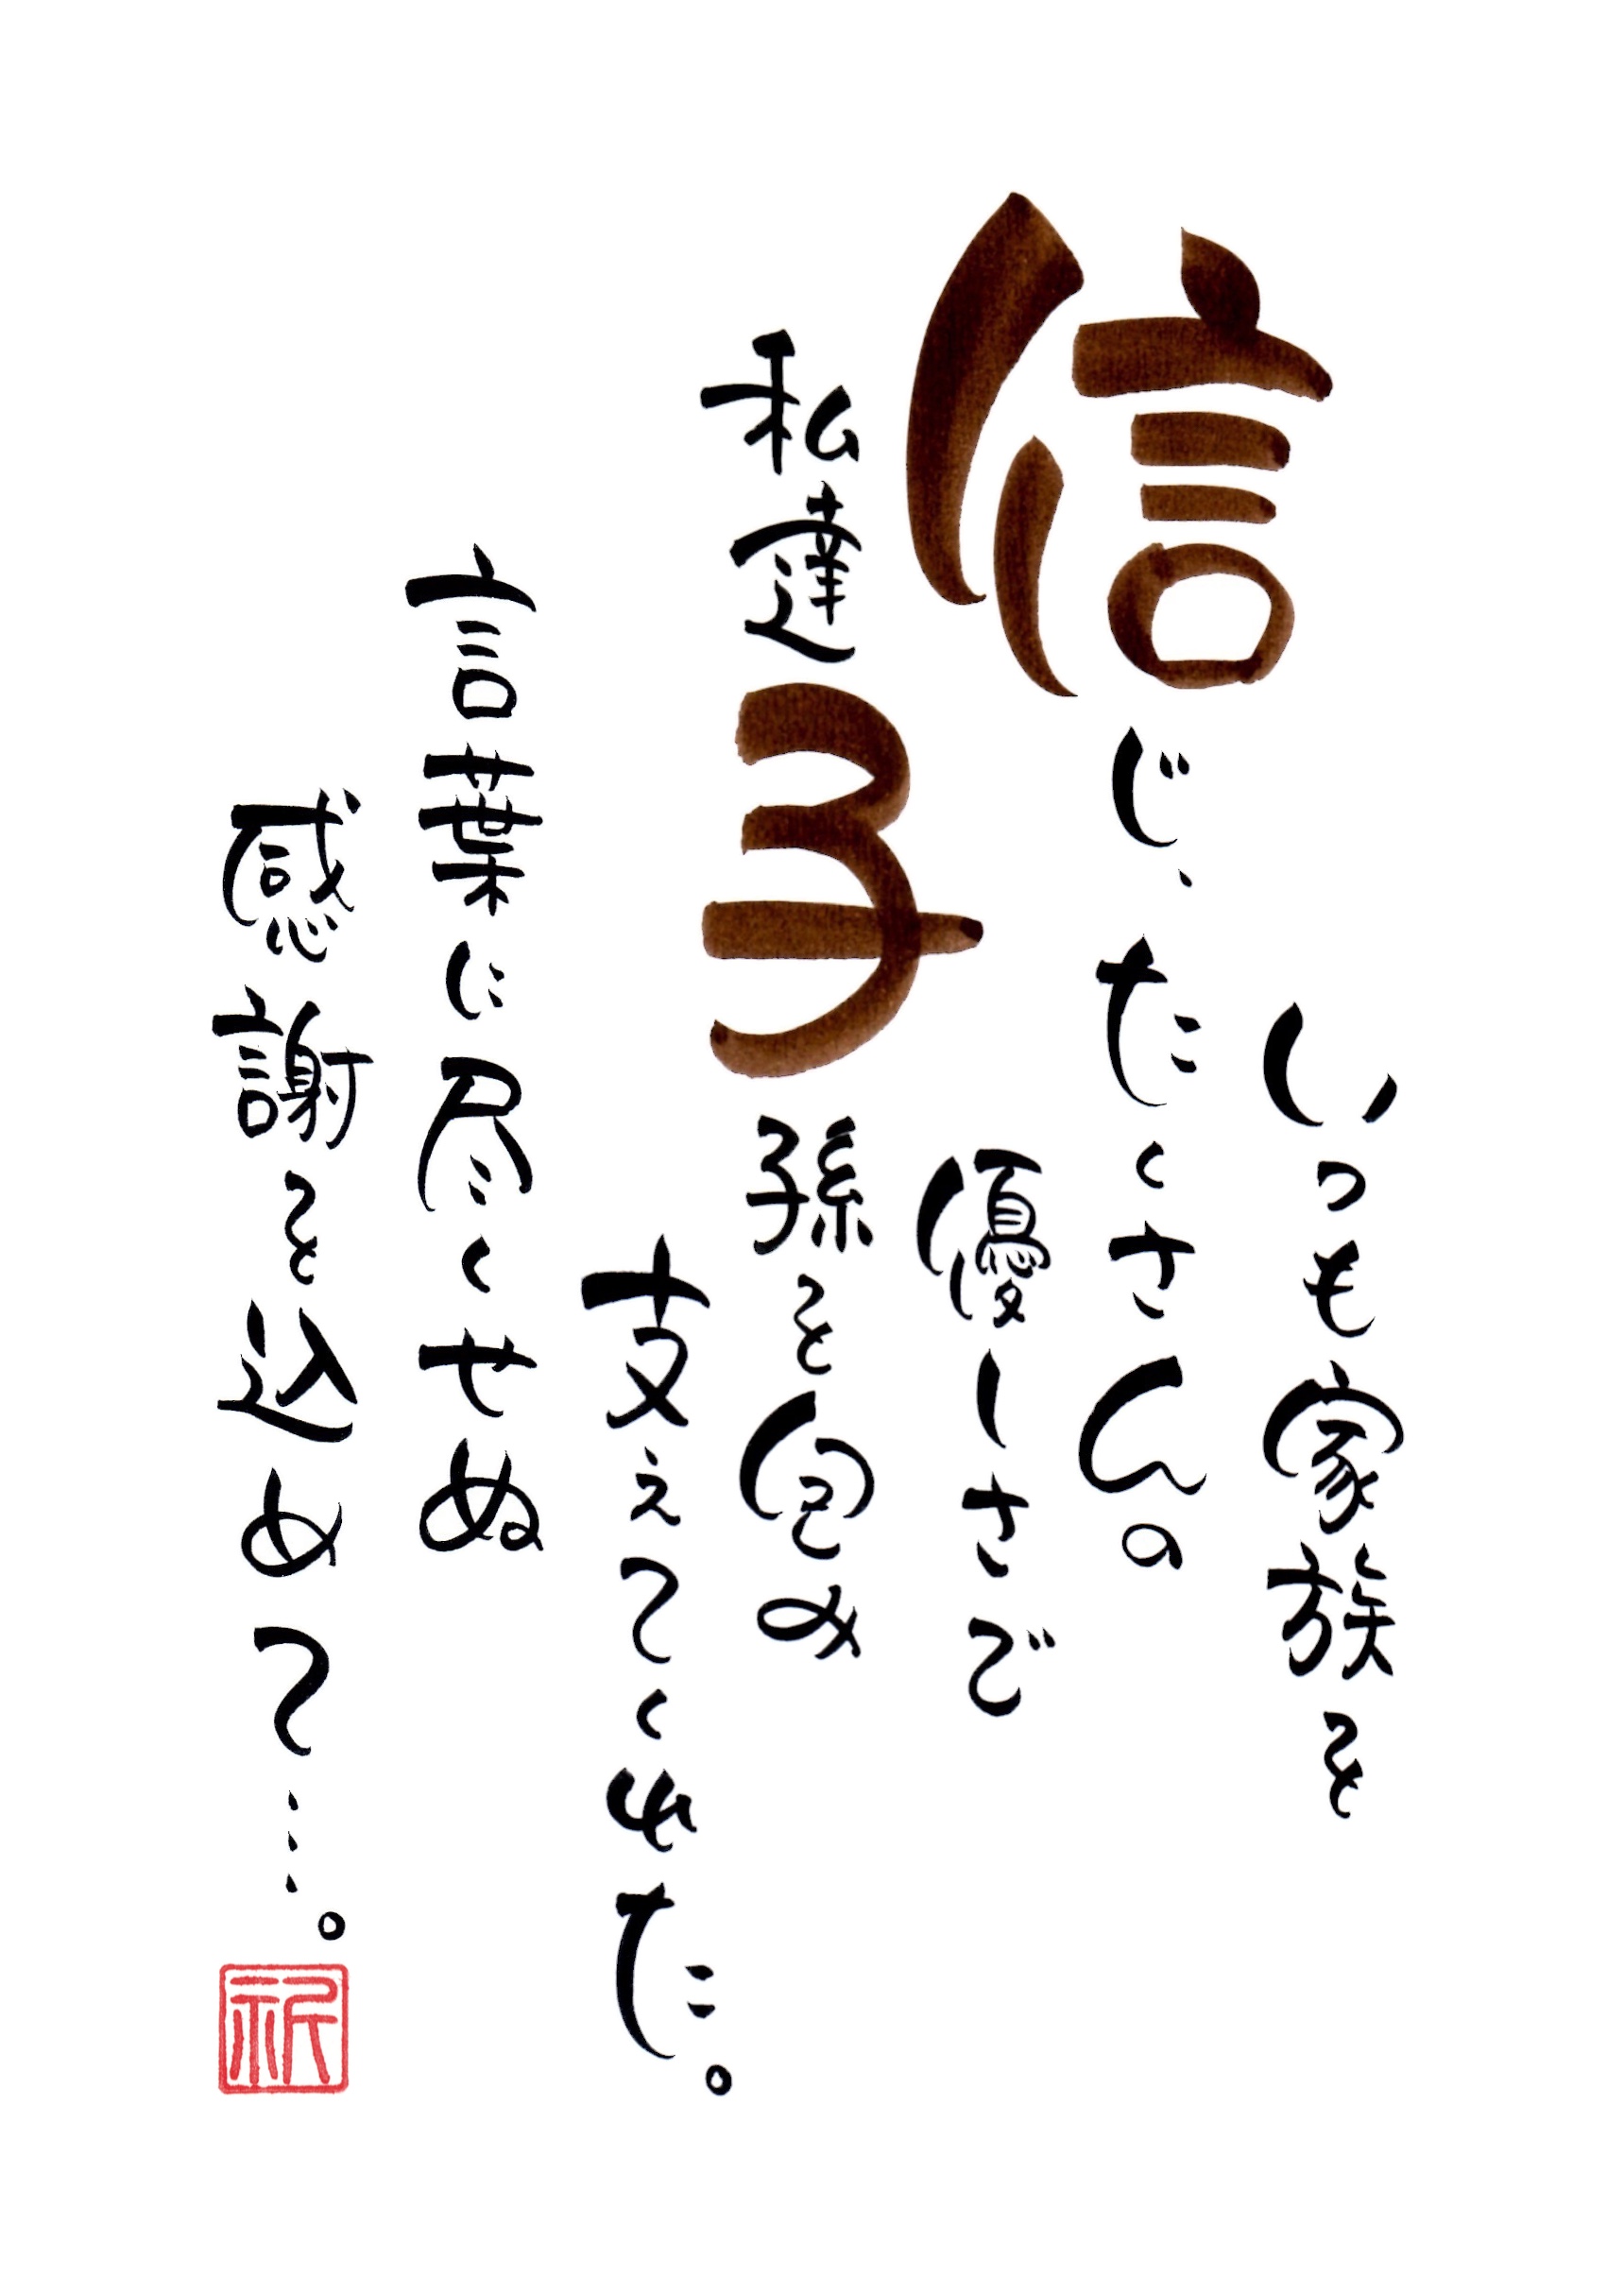 いつも家族を
信じ、たくさんの
優しさで
私達子孫を包み
支えてくれた。
言葉に尽くせぬ
感謝を込めて…。